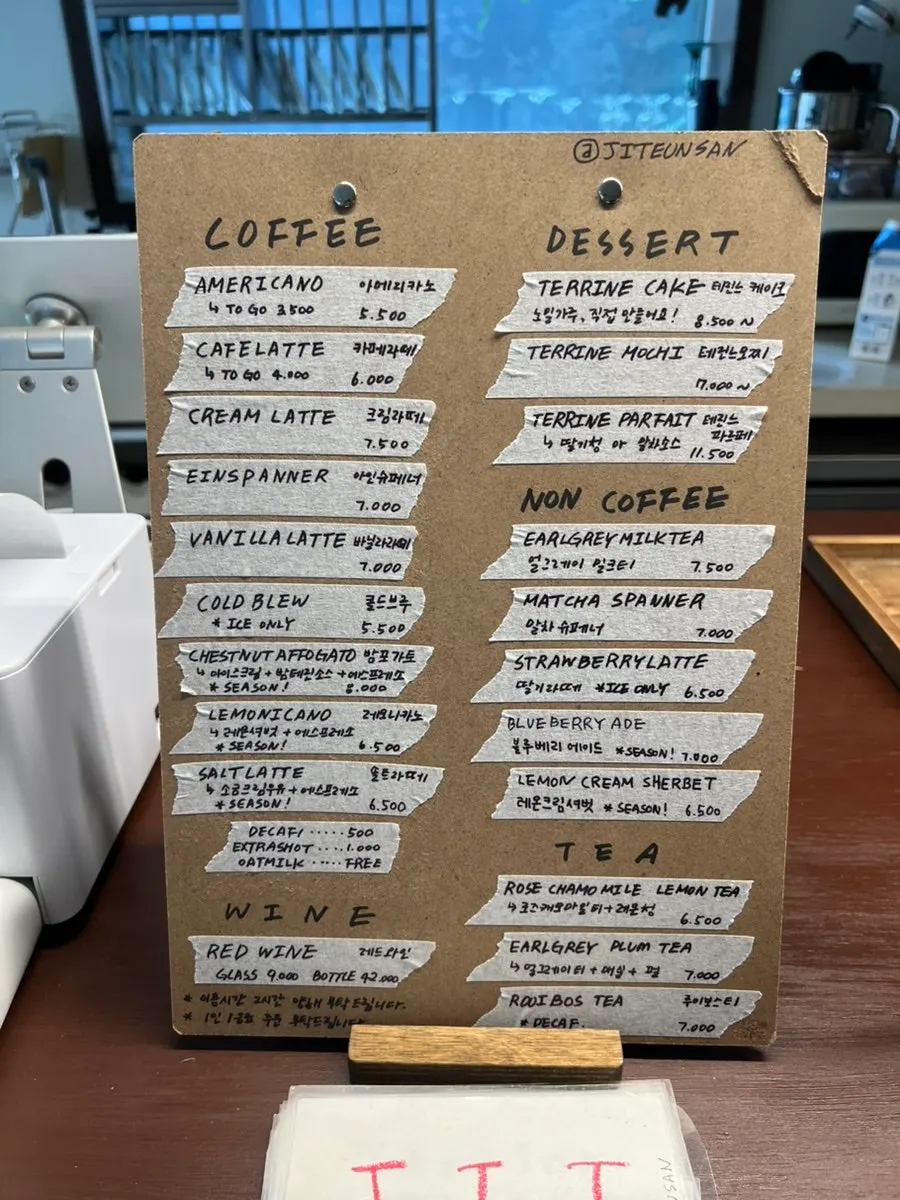 @JITEUNSAN
COFFEE
AMERICANO 아메리카노
↳ TO GO 3500 5.500
CAFE LATTE 카페라떼
↳ TO GO 4.000 6.000
CREAM LATTE 크림라떼
7.500
EINSPANNER 아인슈페너
7.000
VANILLA LATTE 바닐라라떼
7.000
COLD BLEW 콜드브루
* ICE ONLY 5.500
CHESTNUT AFFOGATO 밤포가토
↳ 아이스크림 + 밤테린소스 + 에스프레소
* SEASON! 8.000
LEMONICANO 레모니카노
↳ 레몬셔벗 + 에스프레소
* SEASON! 6.500
SALT LATTE 솔트라떼
↳ 소금크림우유 + 에스프레소
* SEASON! 6.500
DECAFI ····· 500
EXTRASHOT ···· 1.000
OATMILK ····· FREE
WINE
RED WINE 레드와인
GLASS 9.000 BOTTLE 42.000
* 이용시간 2시간 양해 부탁드립니다.
* 1인 1음료 주문 부탁드립니다
DESSERT
TERRINE CAKE 테린느 케이크
노밀가루, 직접 만들어요! 8.500 ~
TERRINE MOCHI 테린느모찌
7.000 ~
TERRINE PARFAIT 테린느
파르페
↳ 딸기청 or 말차소스 11.500
NON COFFEE
EARLGREY MILKTEA
얼그레이 밀크티 7.500
MATCHA SPANNER
말차 슈페너 7.000
STRAWBERRY LATTE
딸기라떼 *ICE ONLY 6.500
BLUEBERRY ADE
블루베리 에이드 *SEASON! 7.000
LEMON CREAM SHERBET
레몬크림셔벗 *SEASON! 6.500
TEA
ROSE CHAMOMILE LEMON TEA
↳ 로즈캐모마일티 + 레몬청 6.500
EARLGREY PLUM TEA
↳ 얼그레이티 + 매실 + 펄 7.000
ROOIBOS TEA 루이보스티
* DECAF. 7.000